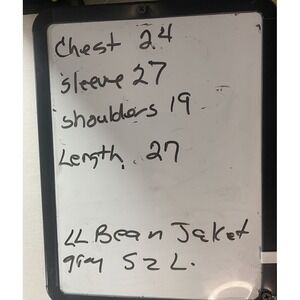 Chest 24
sleeve 27
shoulders 19
Length 27
LL Bean Jaket
gray Sz L.